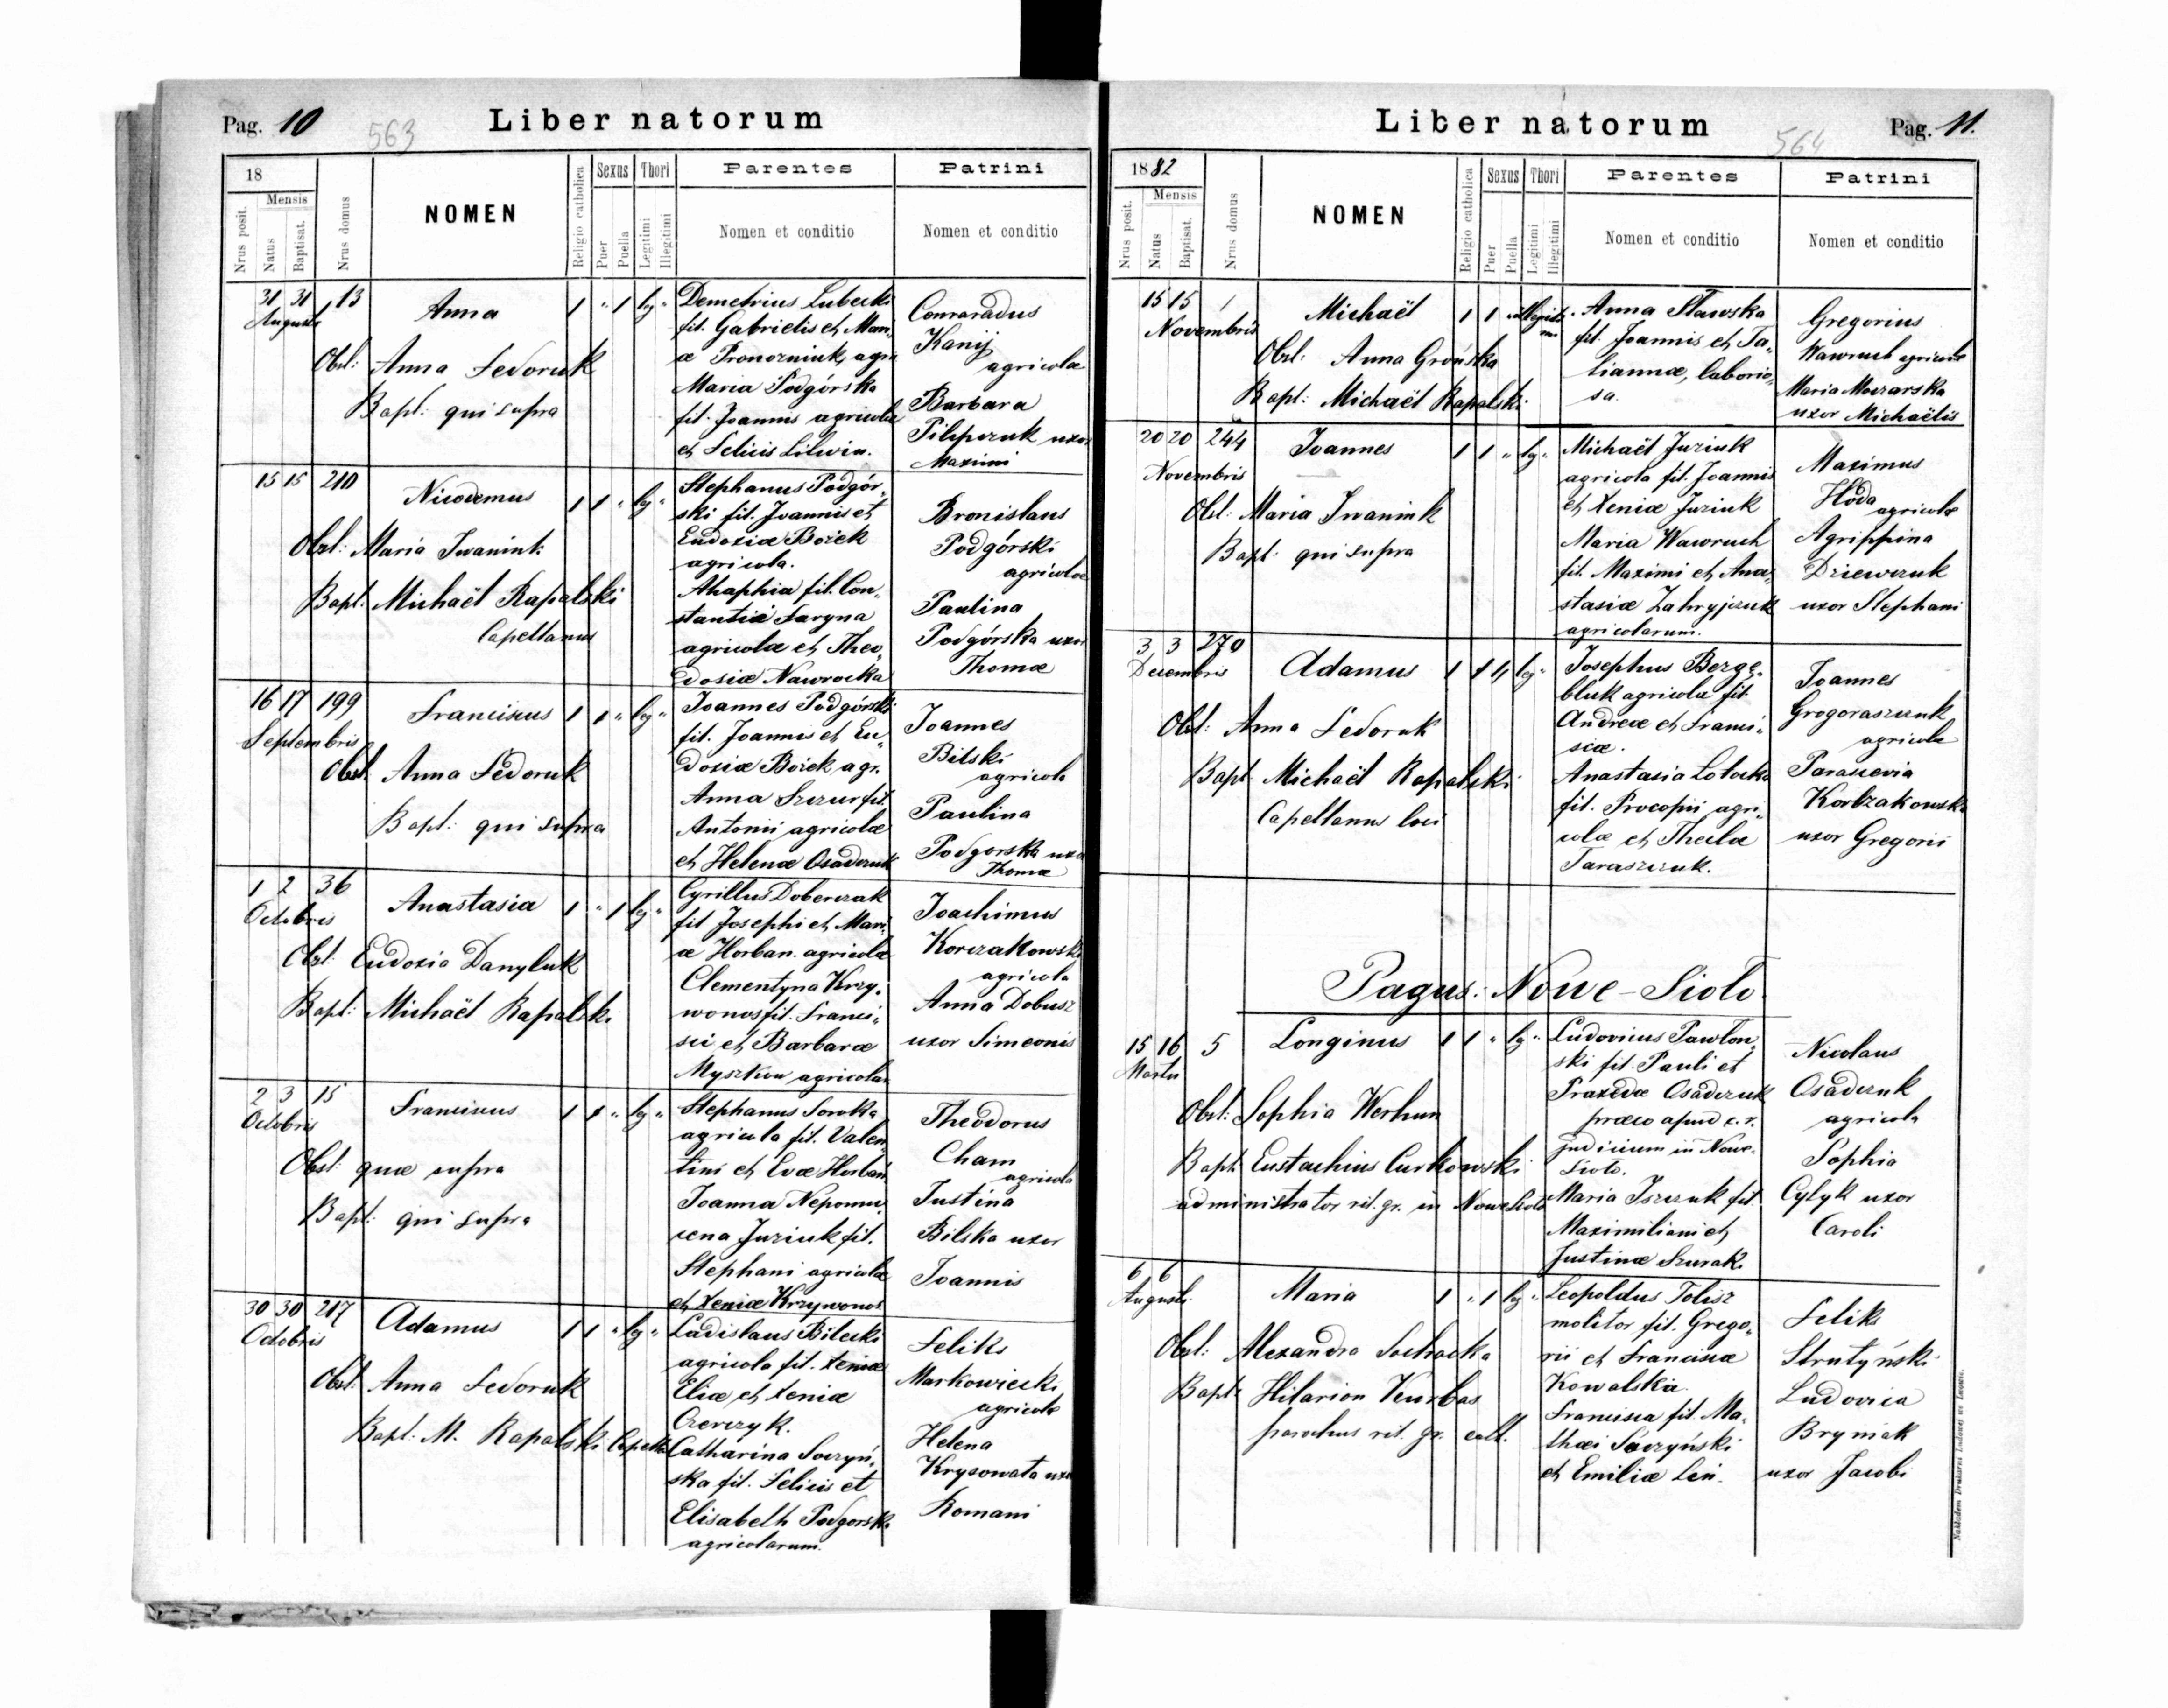 Pag. 10
563
Liber natorum
18
Nrus posit.
Mensis
Natus
Baptisat.
Nrus domus
NOMEN
Religio catholica
Sexus
Puer
Puella
Thori
Legitimi
Illegitimi
Parentes
Nomen et conditio
Patrini
Nomen et conditio
31 31 113
Augusti
Anna
1 " 1 lg "
Obst: Anna Fedoruk
Bapt: qui supra
Demetrius Lubecki
fil. Gabrielis et Mari
æ Pronozniuk, agri
Maria Podgórska
fil. Joannis agricolæ
et Felicis Litwin.
Conraradus
Kanij
agricola
Barbara
Pilipczuk uxor
Maximi
15 15 210
Nicodemus
1 1 " lg "
Obst: Maria Iwaniuk
Bapt: Michaël Rapalski
Capellanus
Stephanus Podgór„
ski fil. Joannis et
Eudoxiæ Bożek
agricola.
Ahaphia fil. Con„
stantii Saryna
agricolæ et Theo„
dosiæ Nawrocka
Bronislaus
Podgórski
agricola
Paulina
Podgórska uxor
Thomæ
16 17 199
Septembris
Franciscus
1 1 " lg "
Obst Anna Fedoruk
Bapt: qui supra
Joannes Podgórski
fil. Joannis et Eu„
doxiæ Bożek agr.
Anna Szczur fil.
Antonii agricolæ
et Helenæ Osadczuk
Joannes
Bilski
agricola
Paulina
Podgorska uxor
Thomæ
1 2 36
Octobris
Anastasia
1 " 1 lg "
Obst: Eudoxia Danyluk
Bapt: Michaël Rapalski
Cyrillus Doberczak
fil Josephi et Mari„
æ Horban. agricolæ
Clementyna Krzy„
wonos fil. Franci„
sci et Barbaræ
Myszkow agricolar
Joachimus
Korczakowski
agricola
Anna Dobusz
uxor Simeonis
2 3 15
Octobris
Franciscus
1 1 " lg "
Obst: quæ supra
Bapt: qui supra
Stephanus Soroka
agricola fil. Valen„
tini et Evæ Horbań
Joanna Nepomu„
cena Juriuk fil.
Stephani agricolæ
et Xeniæ Krzywonos.
Theodorus
Cham
agricola
Justina
Bilska uxor
Joannis
30 30 217
Octobris
Adamus
1 1 " lg "
Obst: Anna Fedoruk
Bapt: M. Rapalski Capella
Ladislaus Bilecki
agricola fil. Xeniæ
Eliæ et Xeniæ
Czerczyk.
Catharina Soczyń„
ska fil. Felicis et
Elisabeth Podgorski
agricolarum.
Feliks
Markowiecki
agricola
Helena
Krysowata uxor
Romani
Liber natorum
564
Pag. 11.
1882
Nrus posit.
Mensis
Natus
Baptisat.
Nrus domus
NOMEN
Religio catholica
Sexus
Puer
Puella
Thori
Legitimi
Illegitimi
Parentes
Nomen et conditio
Patrini
Nomen et conditio
15 15 1
Novembris
Michaël
1 1 "
Obst: Anna Grońska
Bapt: Michaël Rapalski
Anna Stawska
fil. Joannis et Ta„
tiannæ, laborio„
sa.
Gregorius
Wawruch agricola
Maria Moczarska
uxor Michaëlis
20 20 244
Novembris
Joannes
1 1 " lg "
Obst: Maria Iwaniuk
Bapt: qui supra
Michaël Juriuk
agricola fil. Joannis
et Xeniæ Juriuk
Maria Wawruch
fil. Maximi et Ana„
stasiæ Zahryjczuk
agricolarum.
Maximus
Hoda
agricola
Agrippina
Dziewczuk
uxor Stephani
3 3 270
Decembris
Adamus
1 1 " lg "
Obst: Anna Fedoruk
Bapt Michaël Rapalski
Capellanus loci
Josephus Bergę„
bluk agricola fil
Andreæ et Franci„
scæ.
Anastasia Lotocka
fil. Procopii agri„
colæ et Theclæ
Taraszczuk.
Joannes
Grogoraszczuk
agricola
Parascevia
Korbzakowski
uxor Gregorii
Pagus: Nowe-Sioło.
15 16 5
Martii
Longinus
1 1 " lg "
Obst: Sophia Werhun
Bapt Eustachius Curkowski
administrator rit. gr. in Nowesioło
Ludovicus Pawłow„
ski fil. Pauli et
Praxedæ Osadczuk
præco apud c. r.
judicium in Nowe-
Sioło.
Maria Iszczuk fil.
Maximiliani et
Justinæ Szurak.
Nicolaus
Osadczuk
agricola
Sophia
Cylyk uxor
Caroli
6 6
Augusti
Maria
1 " 1 lg "
Obst: Alexandra Sochacka
Bapt: Hilarion Kurbas
parochus rit. gr. cath.
Leopoldus Tolisz
molitor fil. Grego„
rii et Franciscæ
Kowalskia
Francisca fil. Ma„
thæi Soczyński
et Emiliæ Len.
Feliks
Strutyński
Ludovica
Bryniak
uxor Jacobi
Nakładem Drukarni Ludowej we Lwowie.